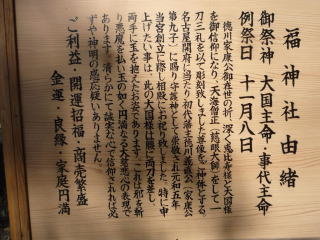 福神社由緒
御祭神 大国主命・事代主命
例祭日 十一月八日
徳川家康公御在世の折、深く恵比寿様と大国様
を御信仰になり、天海僧正(慈眼大師)をして一
刀三礼を以て彫刻致しました尊像を御神体とする。
名古屋開府に当たり初代藩主徳川義直公(家康公
第九子)に賜り守護神として崇敬され元和五年
当宮創立に際し相殿にお祀り致しました。特に申
上げたい事は、此の大国様は腰に両刀を差し、
両手に玉を抱えたお姿であります。これは邪を斬
り悪魔を払い玉の如く円満なる大慈悲心の表現で
あります。清らかにして誠実な心で信仰されれば必
ずや神明の感応疑いありません。
ご利益・開運招福・商売繁盛
金運・良縁・家庭円満